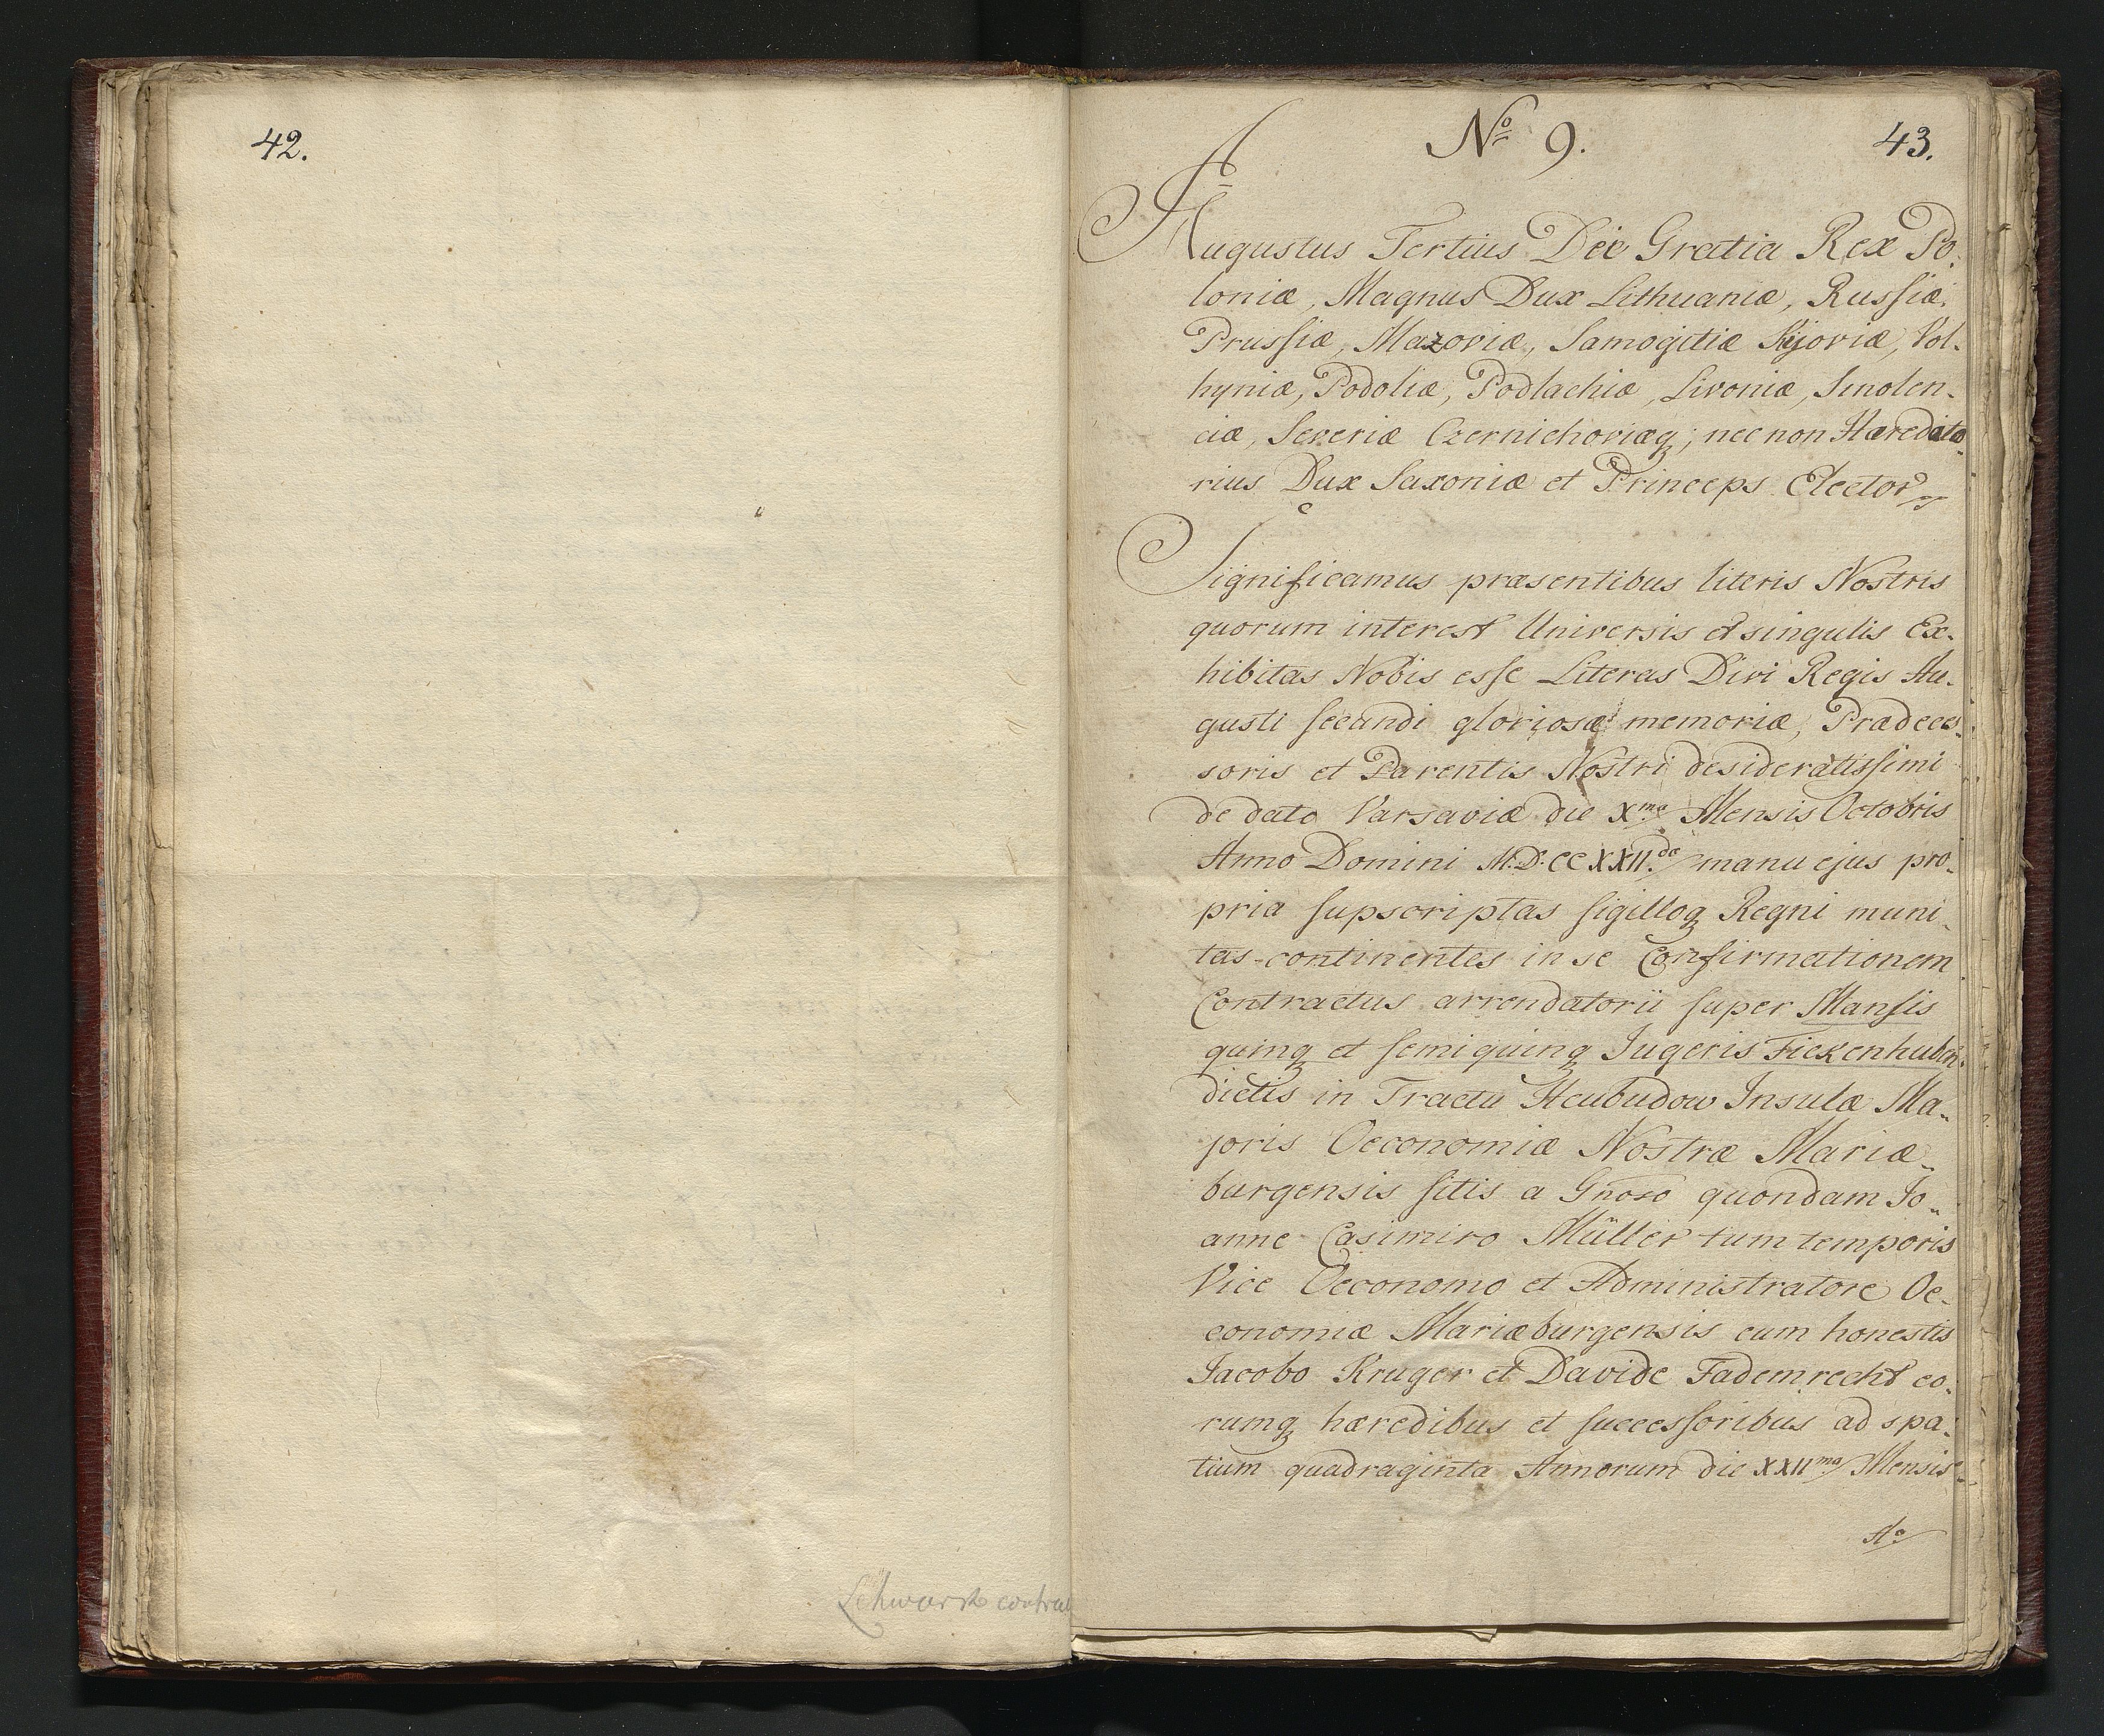 42.
Schwartz contrac
No 9.
43.
Augustus Tertius Dei Gratia Rex Po-
loniæ, Magnus Dux Lithuaniæ, Russiæ,
Prussiæ, Mazoviæ, Samogitiæ Kijoviæ, Vol-
hyniæ, Podoliæ, Podlachiæ, Livoniæ, Smolen-
ciæ, Severiæ Czernichoviæq; nec non Hæredita-
rius Dux Saxoniæ et Princeps Elector
Significamus præsentibus literis Nostris
quorum interest Universis et singulis Ex-
hibitas Nobis esse Literas Divi Regis Au-
gusti secundi gloriosæ memoriæ, Prædeces-
soris et Parentis Nostri desideratissimi
de dato Varsaviæ die Xma Mensis Octobris
Anno Domini M.D.CCXXII.do manu ejus pro-
pria supscriptas sigilloq Regni muni-
tas continentes in se Confirmationem
Contractus arrendatorii super Mansis
quinq et semiquinq Jugeris Fickenhuben
dictis in Tractu Heubudow Insulæ Ma-
joris Oeconomiæ Nostræ Mariæ-
burgensis sitis a Gnoso quondam Jo-
anne Casimiro Müller tum temporis
Vice Oeconomo et Administratore Oe-
conomiæ Mariæburgensis cum honestis
Jacobo Kruger et Davide Fademrecht eo-
rumq hæredibus et successoribus ad spa-
tium quadraginta Annorum die XXIIma Mensis
Ao